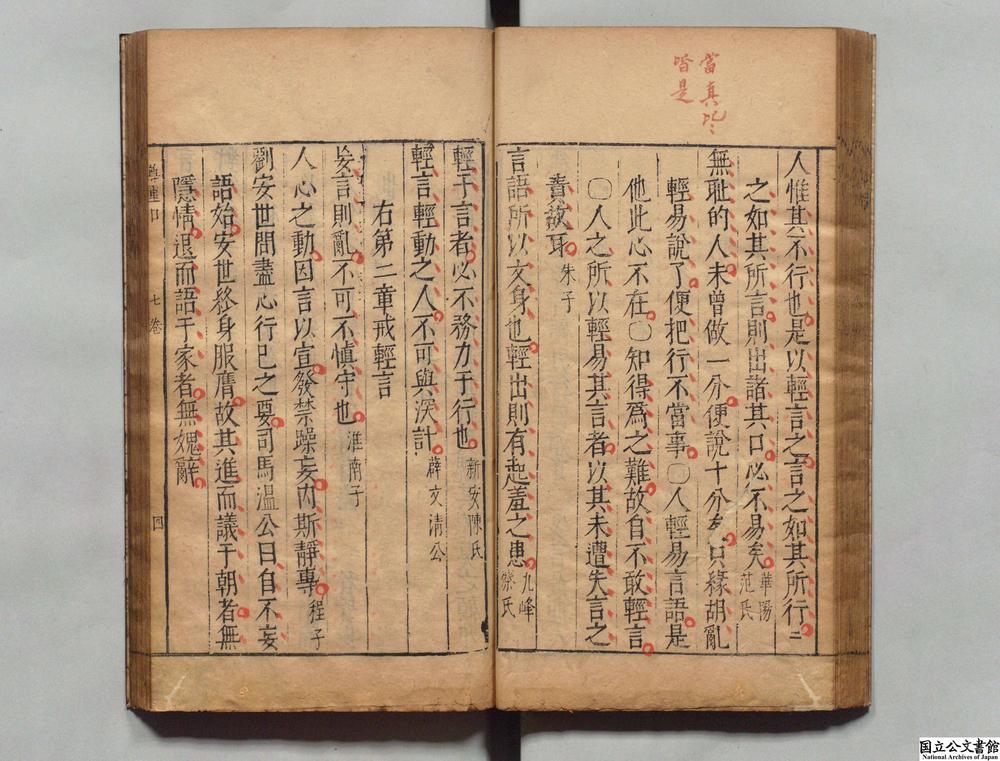 當真
皆是
人惟其不行也是以輕言之言之如其所行行
之如其所言則出諸其口必不易矣華陽范氏
無恥的人未曾做一分便說十分只緣胡亂
輕易說了便把行不當事○人輕易言語是
他此心不在○知得爲之難故自不敢輕言
○人之所以輕易其言者以其未遭失言之
責故耳朱子
言語所以文身也輕出則有起羞之患九峰蔡氏
輕于言者必不務力于行也新安陳氏
輕言輕動之人不可與深計薛文清公
右第二章戒輕言
妄言則亂不可不慎守也淮南子
人心之動因言以宣發禁躁妄內斯靜專程子
劉安世問盡心行己之要司馬溫公曰自不妄
語始安世終身服膺故其進而議于朝者無
隱情退而語于家者無媿辭
七卷
四
国立公文書館
National Archives of Japan